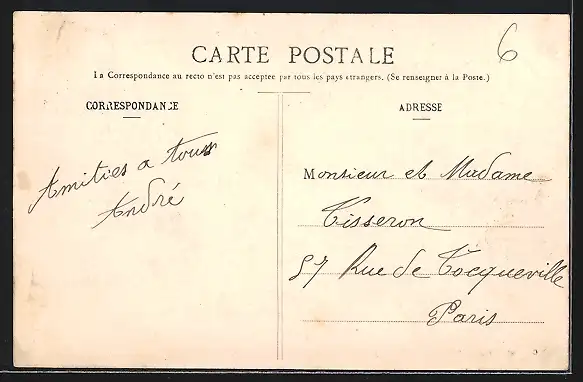 6
CARTE POSTALE
La Correspondance au recto n'est pas acceptée par tous les pays étrangers. (Se renseigner à la Poste.)
CORRESPONDANCE
ADRESSE
Amitiés a tous
André
Monsieur et Madame
Tisseron
57 Rue de Tocqueville
Paris